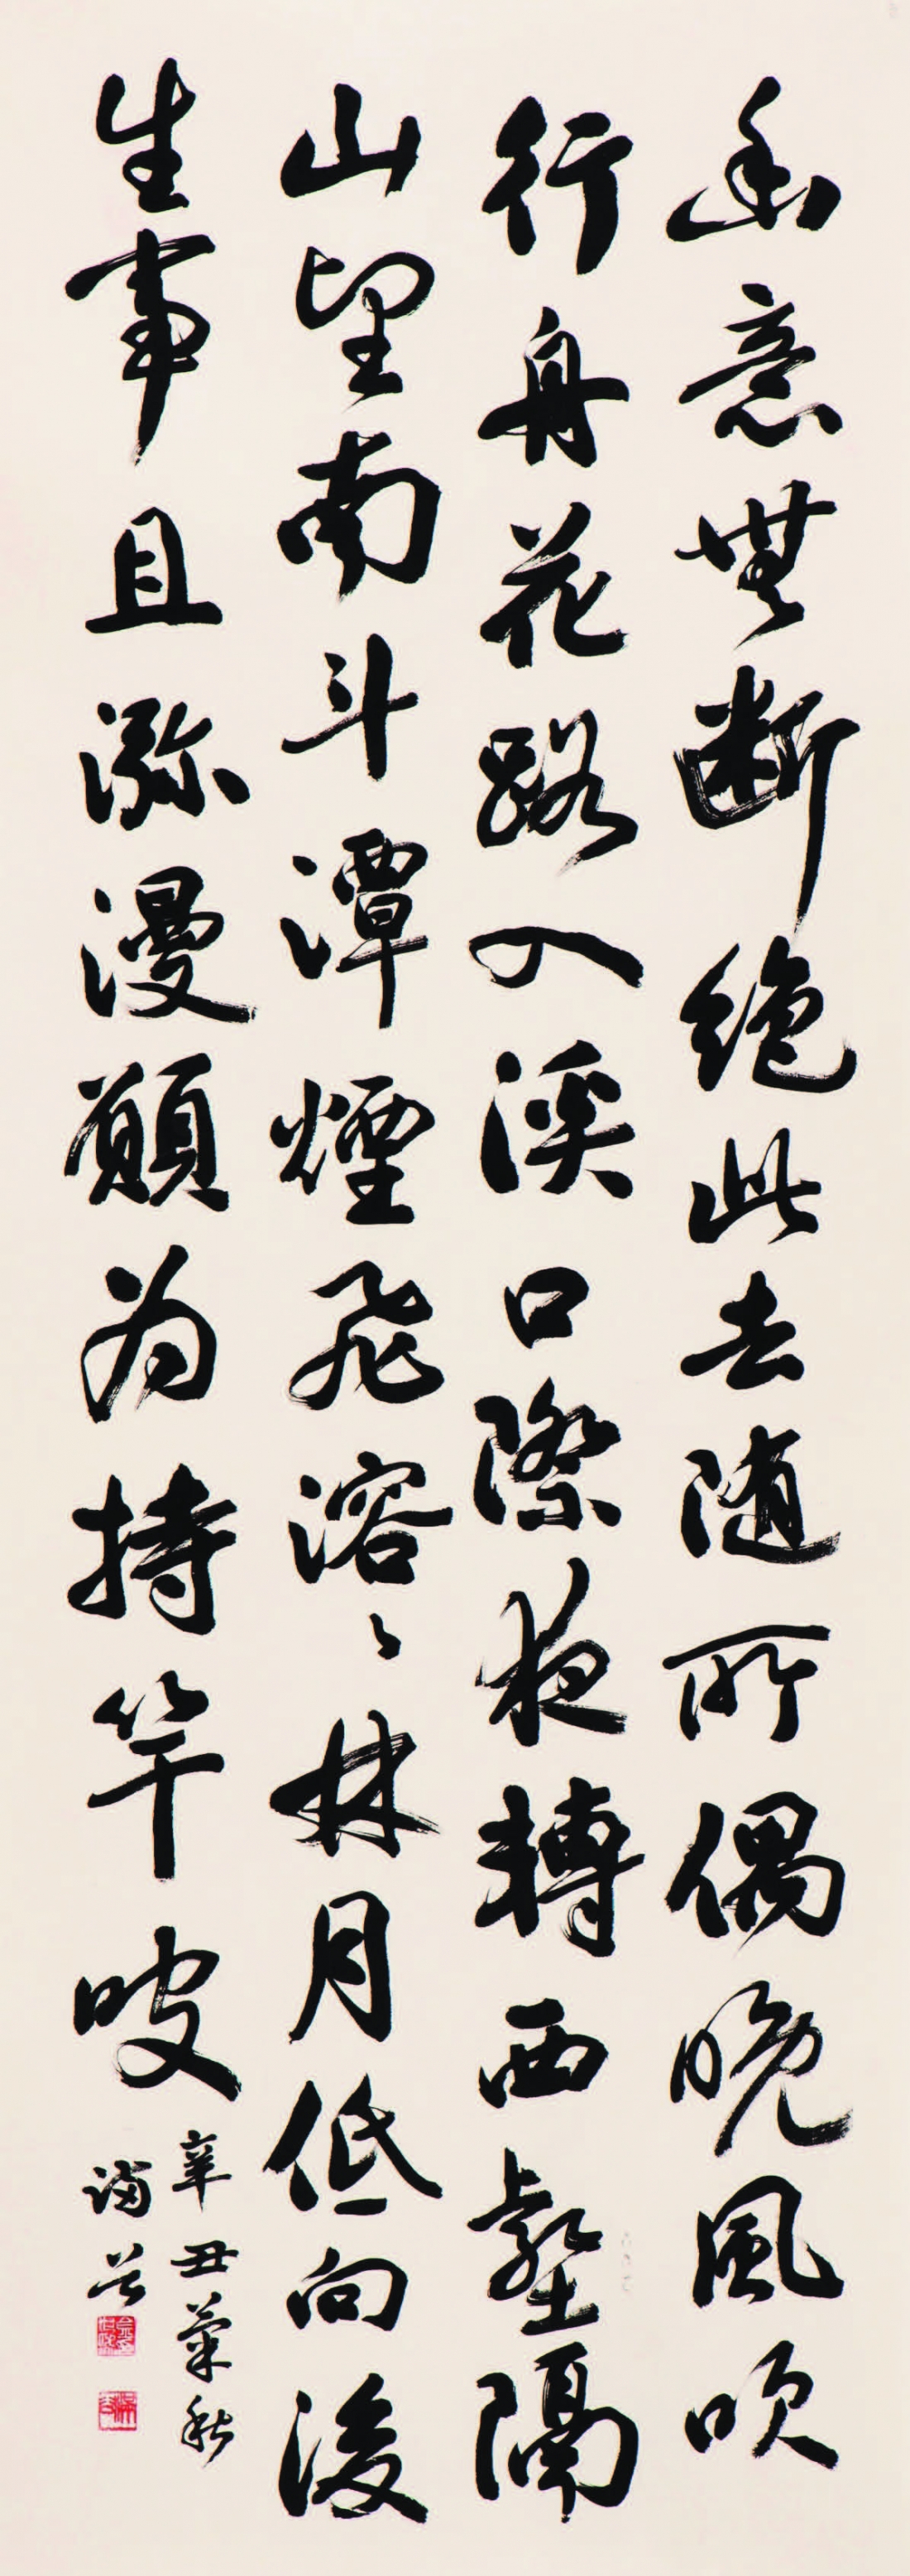 幽意無断絶此去随所偶晚風吹
行舟花路入溪口際夜轉西壑隔
山望南斗潭煙飛溶〻林月低向後
生事且瀰漫願为持竿叟
辛丑菊秋